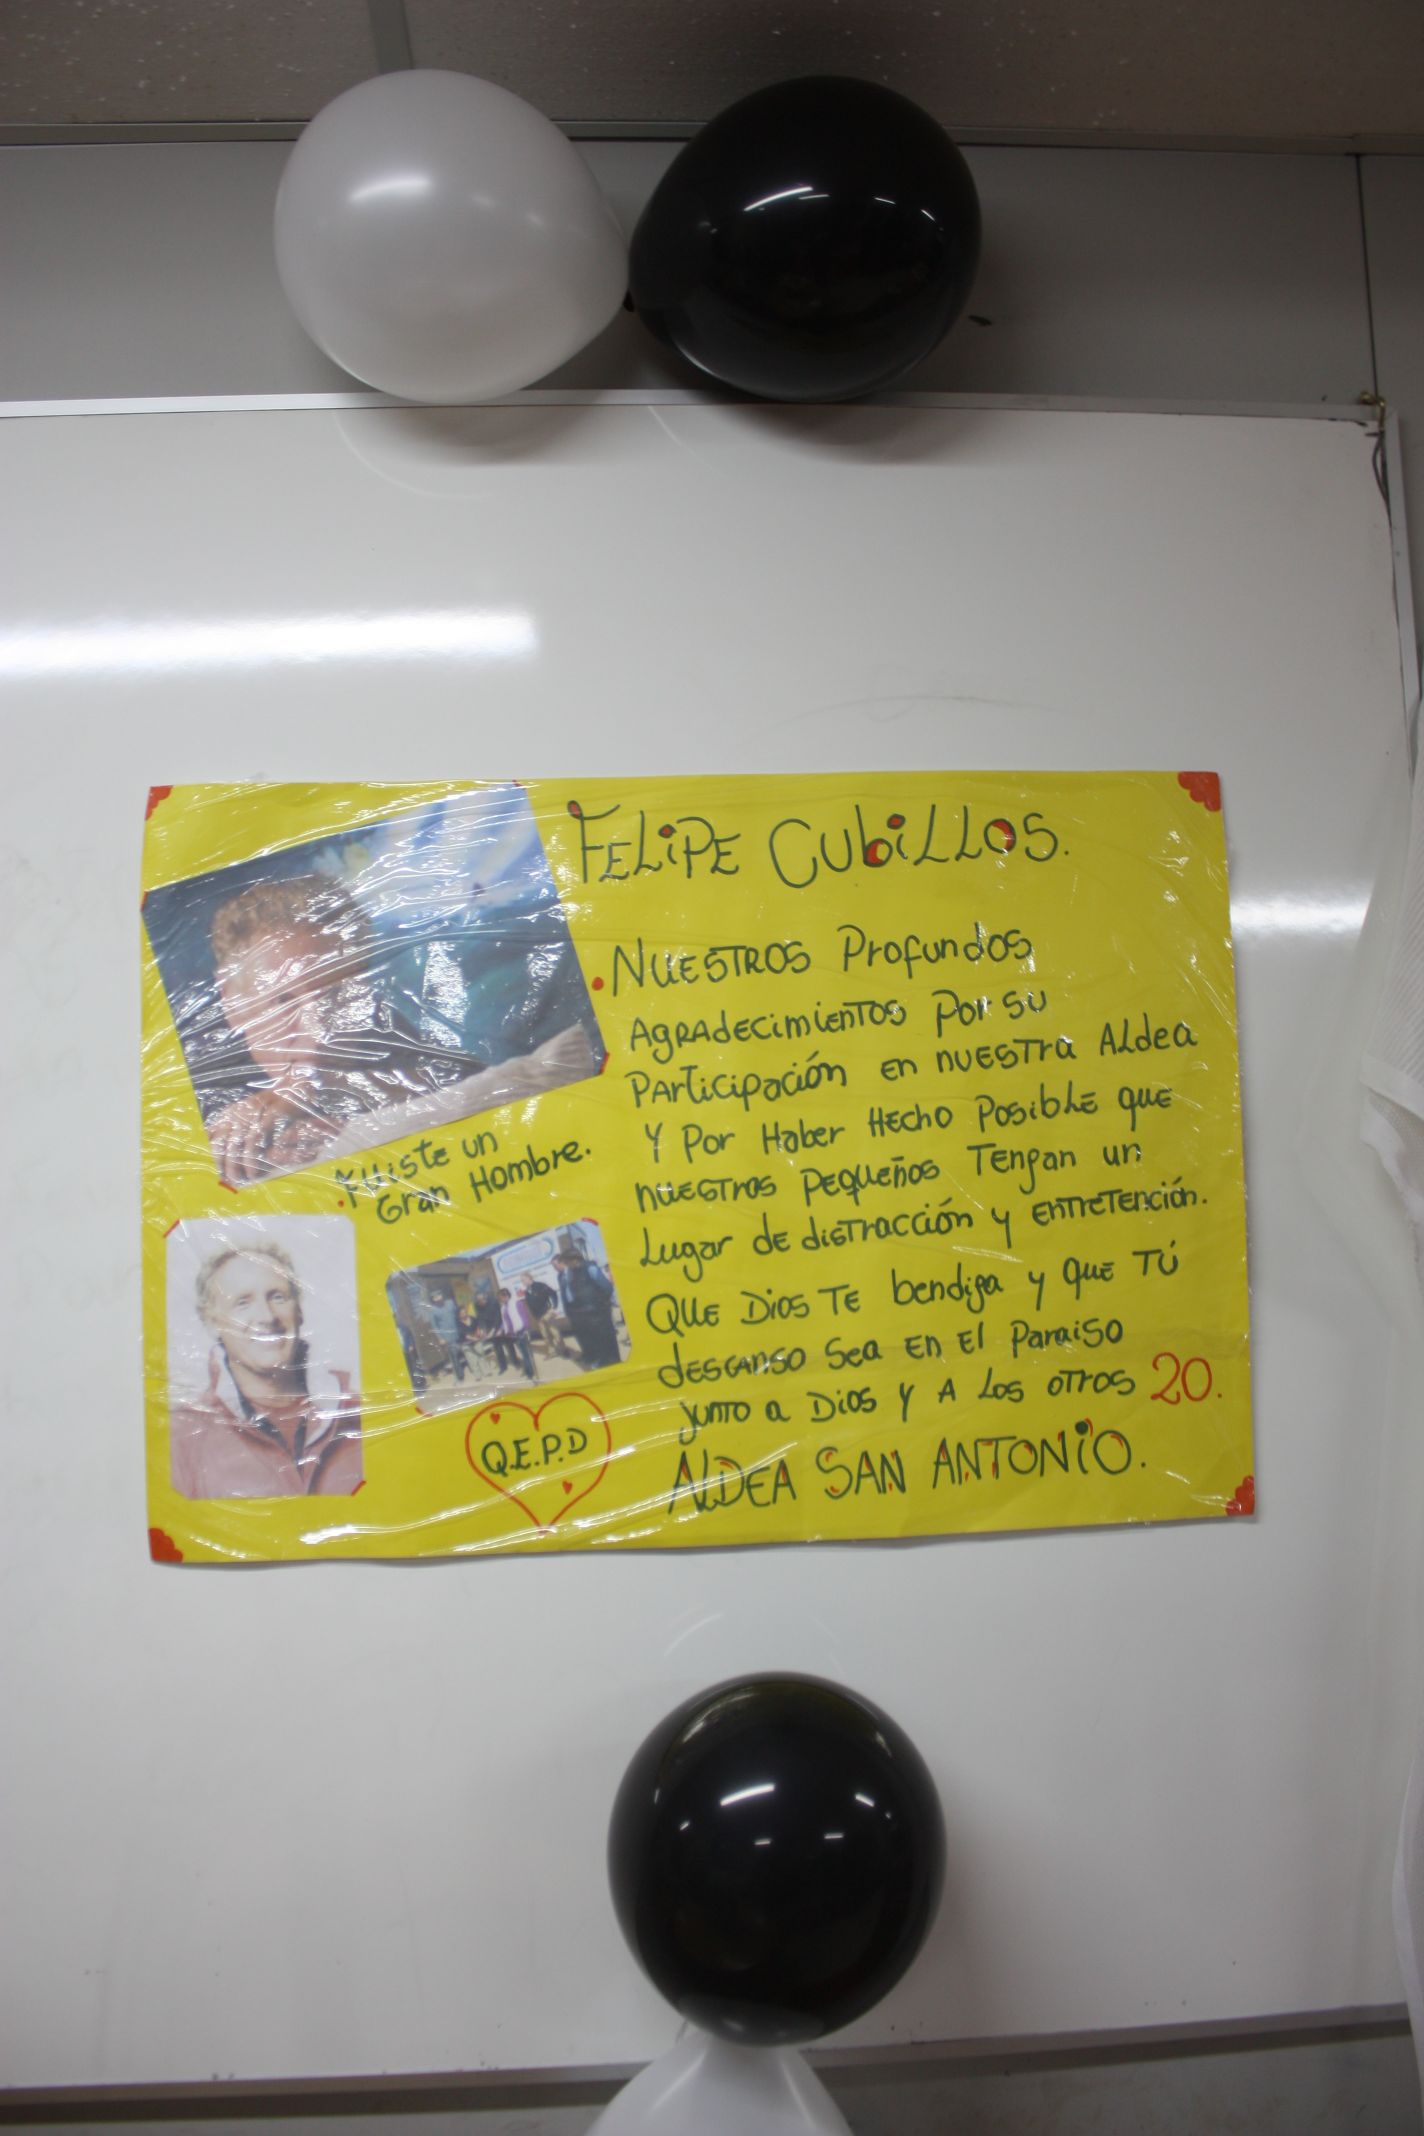 FELIPE CUBILLOS.
• NUESTROS Profundos
AGRADECIMIENTOS POR SU
PARTICIPACIÓN EN NUESTRA ALDEA
Y POR HABER HECHO POSIBLE QUE
NUESTROS PEQUEÑOS TENGAN UN
LUGAR DE DISTRACCIÓN Y ENTRETENCIÓN.
QUE DIOS TE bendiga y que TÚ
DESCANSO SEA EN EL PARAISO
JUNTO A DIOS Y A LOS OTROS 20.
ALDEA SAN ANTONIO.
• Fuiste un
Gran Hombre.
Q.E.P.D